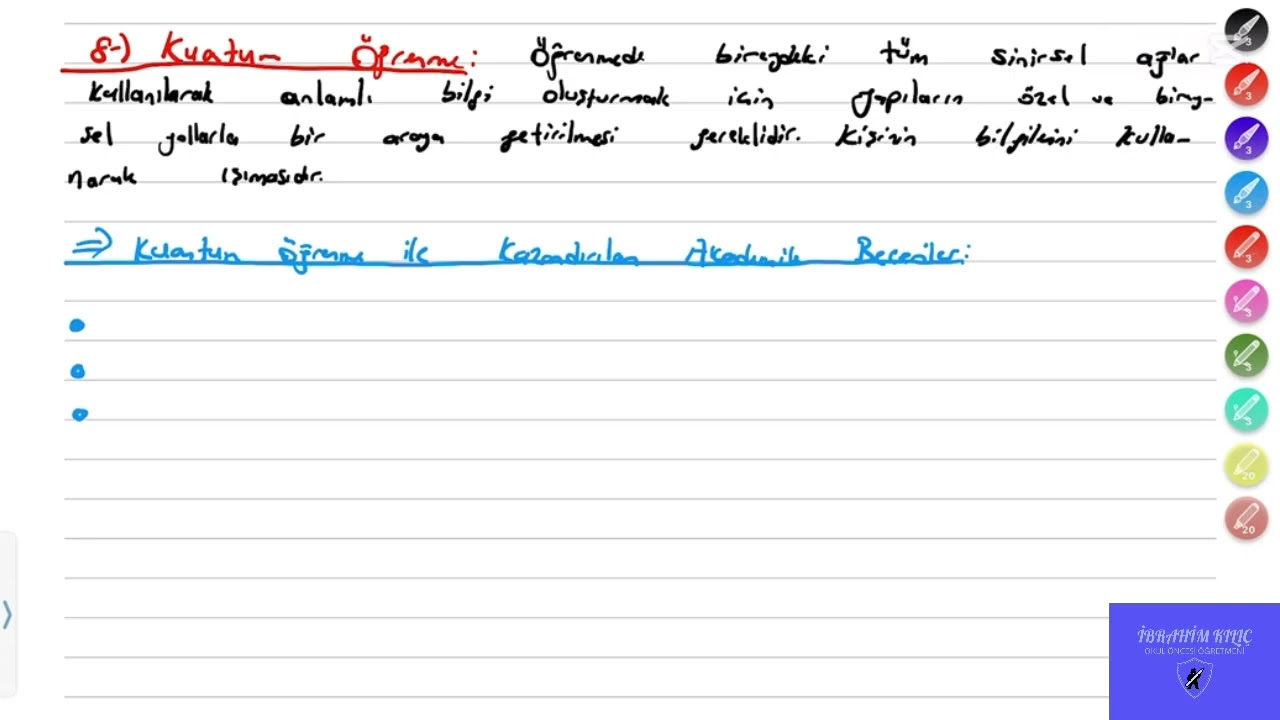 8-) Kuatum Öğrenme: Öğrenmede bireydeki tüm sinirsel ağlar
kullanılarak anlamlı bilgi oluşturmak için yapıların özel ve birey-
sel yollarla bir araya getirilmesi gereklidir. Kişinin bilgilerini kulla-
narak ışımasıdır.
⇒ Kuantum öğrenme ile Kazandırılan Akademik Beceriler:
3
3
3
3
3
3
3
3
20
20
İBRAHİM KILIÇ
OKUL ÖNCESİ ÖĞRETMENİ